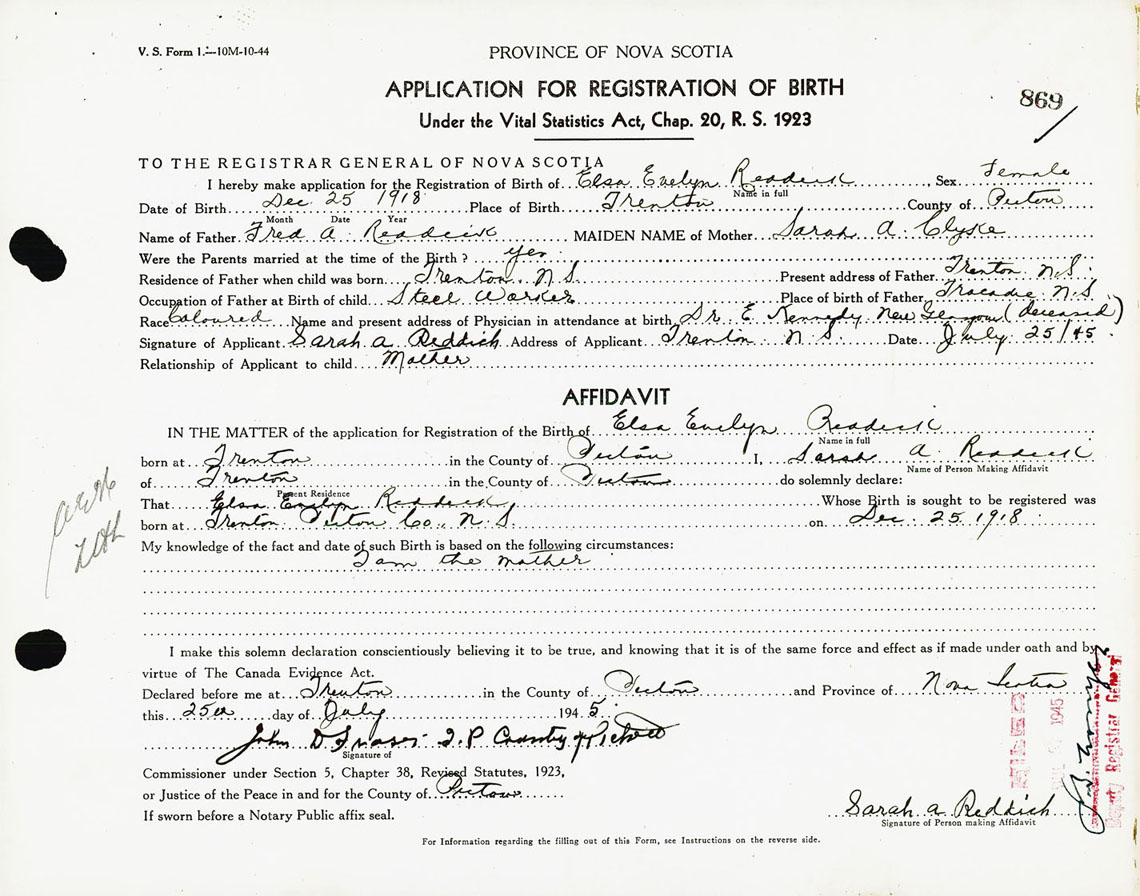 V. S. Form 1.—10M-10-44
PROVINCE OF NOVA SCOTIA
APPLICATION FOR REGISTRATION OF BIRTH
869
Under the Vital Statistics Act, Chap. 20, R. S. 1923
TO THE REGISTRAR GENERAL OF NOVA SCOTIA
I hereby make application for the Registration of Birth of Elsa Evelyn Reddick, Sex Female
Name in full
Date of Birth Dec 25 1918 Place of Birth Trenton County of Pictou
Month Date Year
Name of Father Fred A. Reddick MAIDEN NAME of Mother Sarah A. Clyke
Were the Parents married at the time of the Birth? yes
Residence of Father when child was born Trenton N.S. Present address of Father Trenton N.S.
Occupation of Father at Birth of child Steel Worker Place of birth of Father Tracadie N.S.
Race Coloured Name and present address of Physician in attendance at birth Dr. E. Kennedy New Glasgow (deceased)
Signature of Applicant Sarah A Reddick Address of Applicant Trenton N.S. Date July 25/45
Relationship of Applicant to child Mother
AFFIDAVIT
IN THE MATTER of the application for Registration of the Birth of Elsa Evelyn Reddick
Name in full
born at Trenton in the County of Pictou I, Sarah A Reddick
Name of Person Making Affidavit
of Trenton in the County of Pictou do solemnly declare:
Present Residence
That Elsa Evelyn Reddick Whose Birth is sought to be registered was
born at Trenton Pictou Co., N.S. on Dec. 25 1918
My knowledge of the fact and date of such Birth is based on the following circumstances:
I am the mother
I make this solemn declaration conscientiously believing it to be true, and knowing that it is of the same force and effect as if made under oath and by
virtue of The Canada Evidence Act.
Declared before me at Trenton in the County of Pictou and Province of Nova Scotia
this 25th day of July 1945
John D Fraser J.P County of Pictou
Signature of
Commissioner under Section 5, Chapter 38, Revised Statutes, 1923,
or Justice of the Peace in and for the County of Pictou
If sworn before a Notary Public affix seal.
Sarah A Reddick
Signature of Person making Affidavit
For Information regarding the filling out of this Form, see Instructions on the reverse side.
FILED
1945
Deputy Registrar General